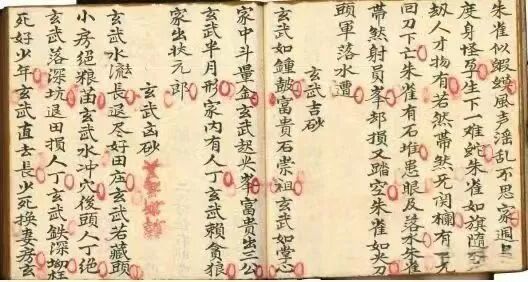 朱雀似蝦蟆風声淫乱不思家
度身怪孕生下一难蛇朱雀如旗隨空
刼人才物有若然帶然死関欄有一
回刀下亡朱雀有石堆患眼及落水朱雀
帶然射員峯却損又踏空朱雀如尖刀
頭軍落水遭
玄武吉砂
玄武如鐘皷富貴石崇祖玄武如掌心
家中斗量金玄武起尖峯富貴出三公
玄武半月形家内有人丁玄武賴貪狼
家出状元郎
玄武凶砂
玄武水長退尽好田庄玄武若藏頭
小房絕粮苗玄武水冲穴後頭人丁絕
玄武落深坑退田損人丁玄武鈇深坳枉
死好少年玄武直去長少死換妻房玄